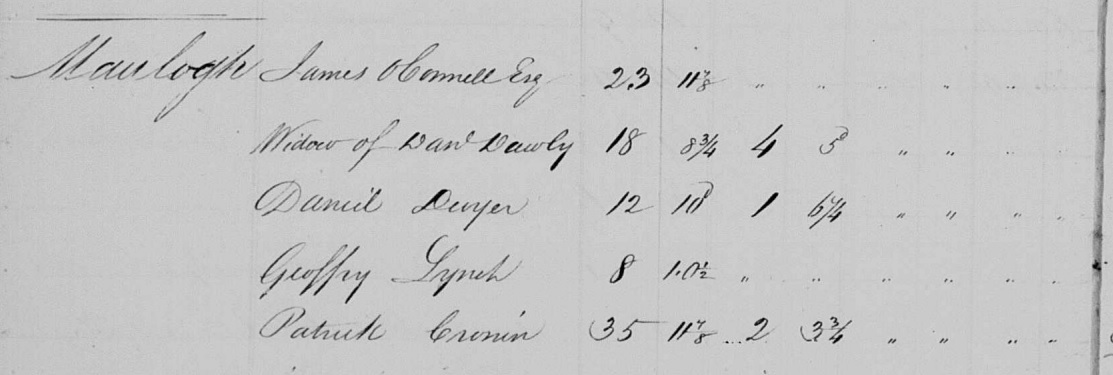 Maulogh James OConnell Esq 23 11⅞ " " " " "
Widow of Danl Dawly 18 8¾ 4 5 " " " "
Daniel Dwyer 12 10 1 6¼ " " " "
Geoffry Lynch 8 1.0½ " " " " " "
Patrick Cronin 35 11⅞ 2 3¾ " " " "